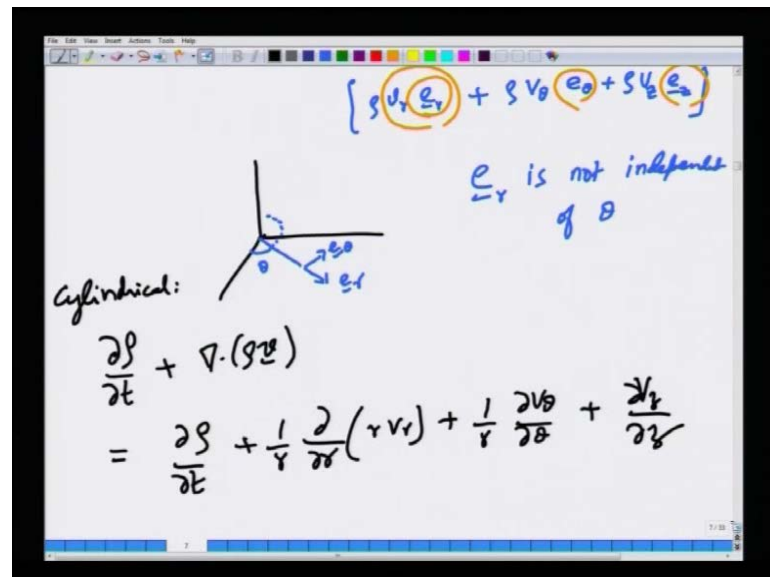 File Edit View Insert Actions Tools Help
[ρ v_r e_r + ρ v_θ e_θ + ρ v_z e_z]
e_r is not independent
of θ
θ e_θ
e_r
Cylindrical:
∂ρ/∂t + ∇·(ρv)
= ∂ρ/∂t + 1/r ∂/∂r (r v_r) + 1/r ∂v_θ/∂θ + ∂v_z/∂z
7